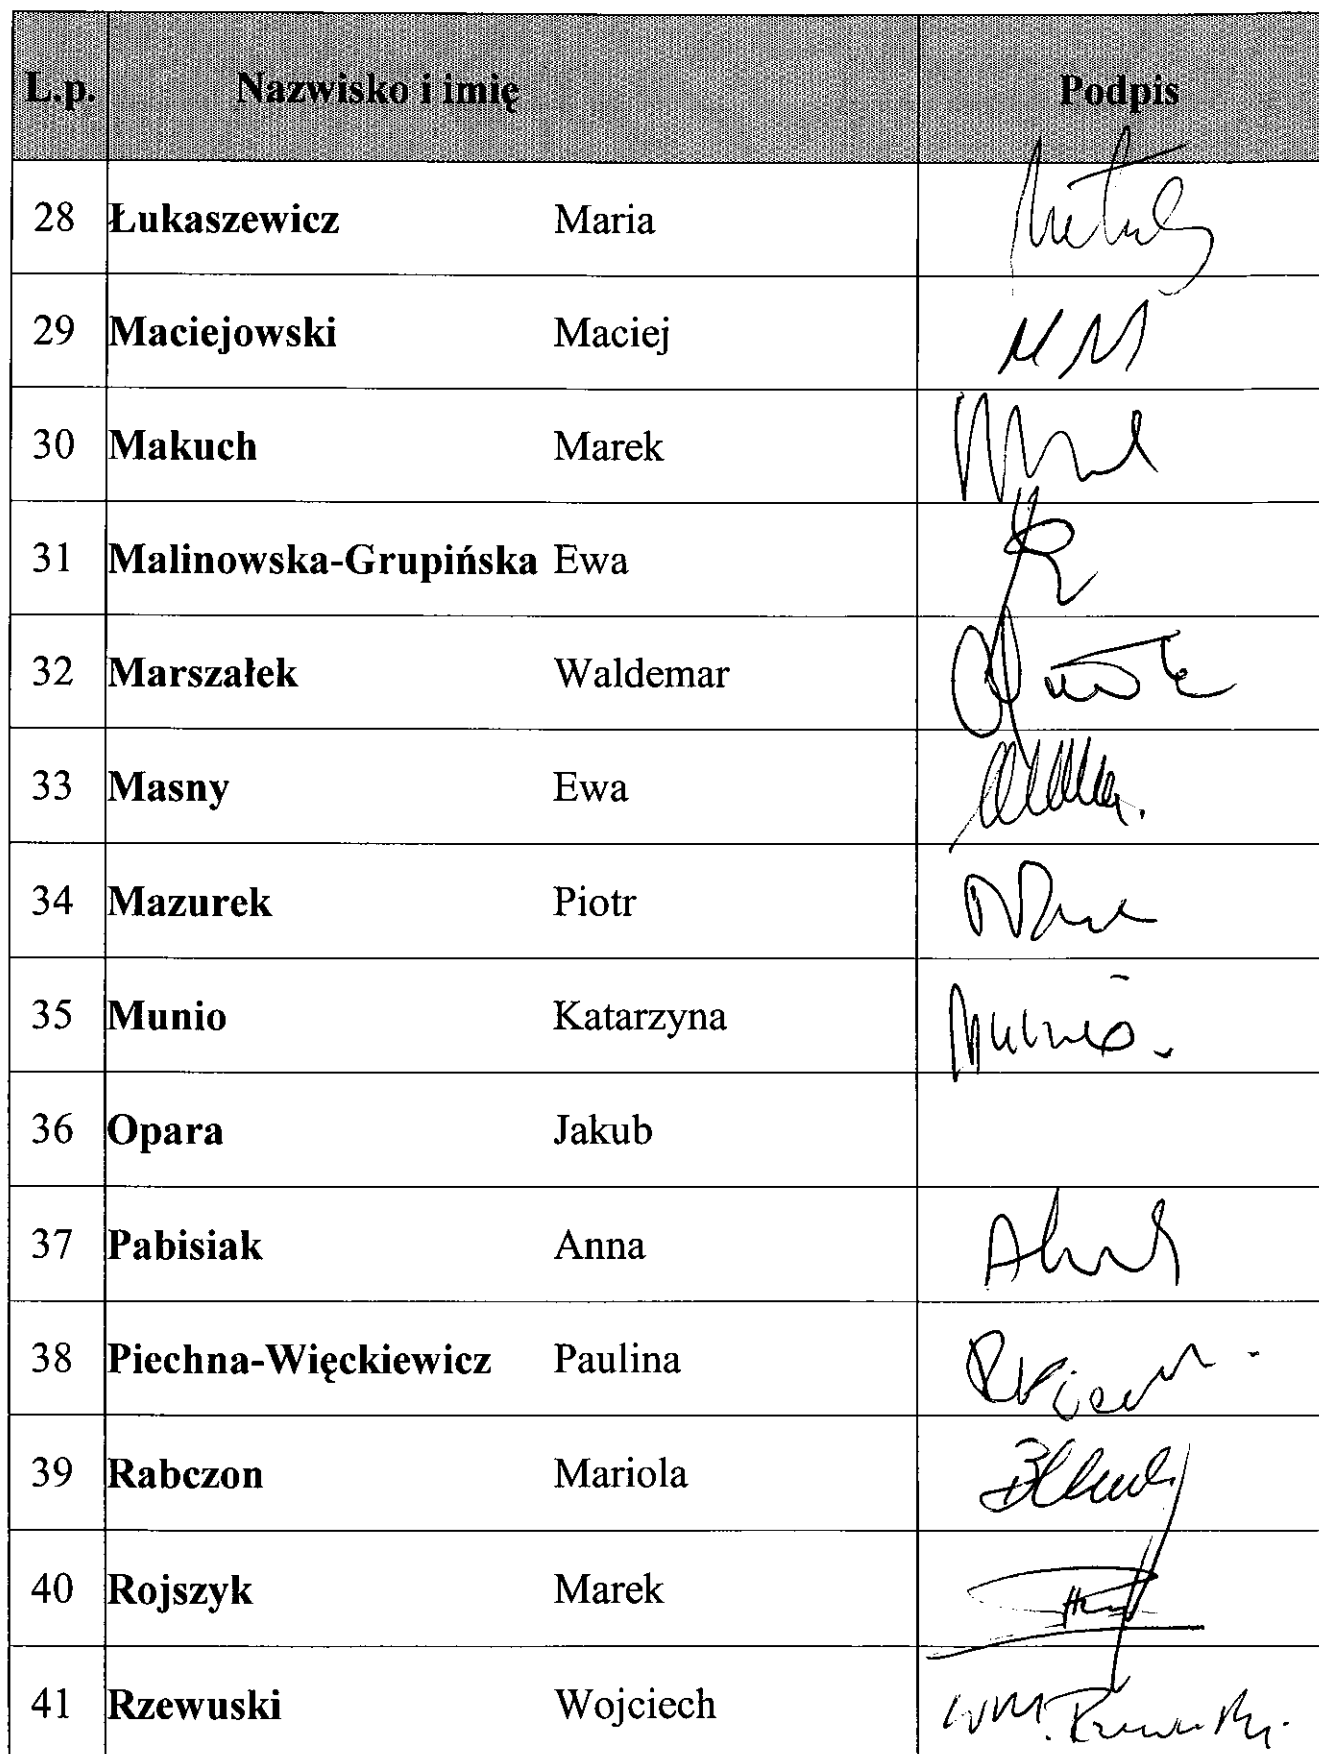 L.p. Nazwisko i imię Podpis
28 Łukaszewicz Maria
29 Maciejowski Maciej MM
30 Makuch Marek
31 Malinowska-Grupińska Ewa
32 Marszałek Waldemar
33 Masny Ewa
34 Mazurek Piotr
35 Munio Katarzyna Munio.
36 Opara Jakub
37 Pabisiak Anna
38 Piechna-Więckiewicz Paulina
39 Rabczon Mariola
40 Rojszyk Marek
41 Rzewuski Wojciech